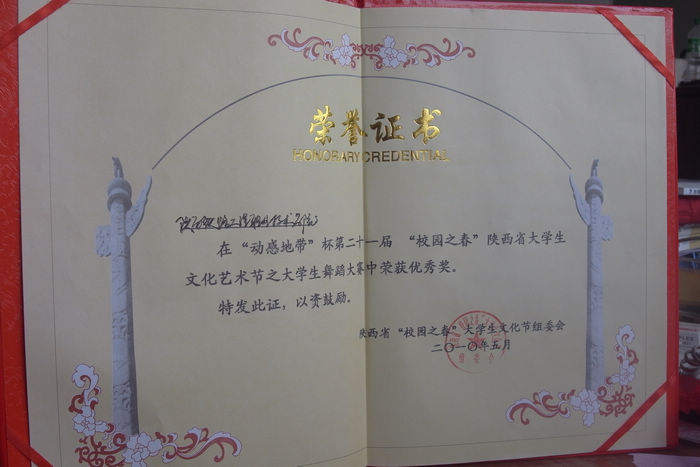 荣誉证书
HONORARY CREDENTIAL
陕西铁路工程职业技术学院：
在“动感地带”杯第二十一届 “校园之春”陕西省大学生
文化艺术节之大学生舞蹈大赛中荣获优秀奖。
特发此证，以资鼓励。
陕西省“校园之春”大学生文化节组委会
二〇一〇年五月